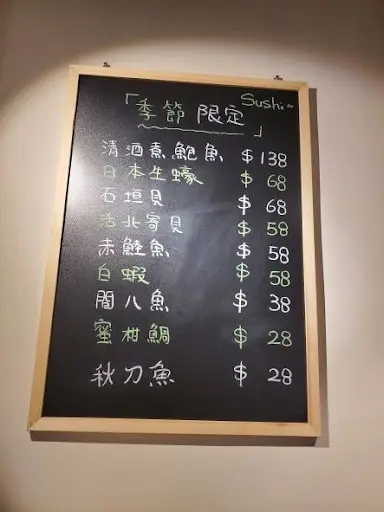 Sushi~
「季節限定」
清酒煮鮑魚 $138
日本生蠔 $68
石垣貝 $68
活北寄貝 $58
赤鯥魚 $58
白蝦 $58
間八魚 $38
蜜柑鯛 $28
秋刀魚 $28